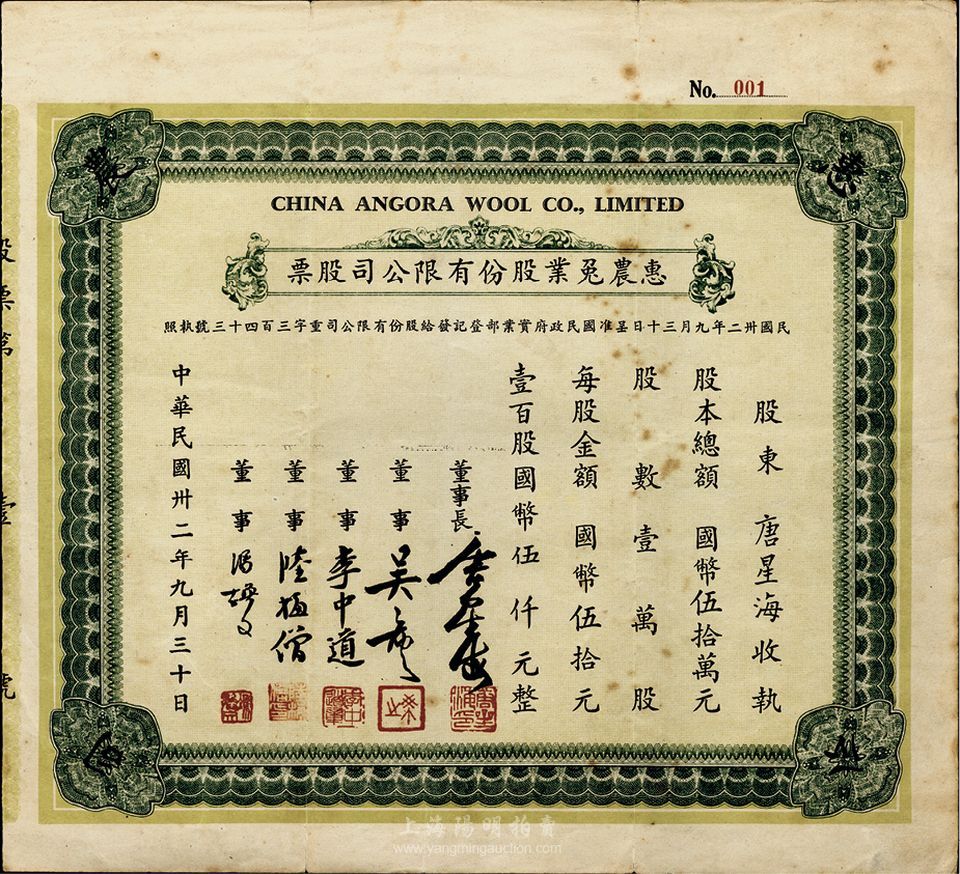 No. 001
惠
農
CHINA ANGORA WOOL CO., LIMITED
惠農兎業股份有限公司股票
民國卅二年九月三十日呈准國民政府實業部登記發給股份有限公司重字三百四十三號執照
股東 唐星海收執
股本總額 國幣伍拾萬元
股數壹萬股
每股金額 國幣伍拾元
壹百股國幣伍仟元整
董事長
董事 吳
董事 李中道
董事 陸
董事 馮
中華民國卅二年九月三十日
股票第 壹 號
上海陽明拍賣
www.yangmingauction.com